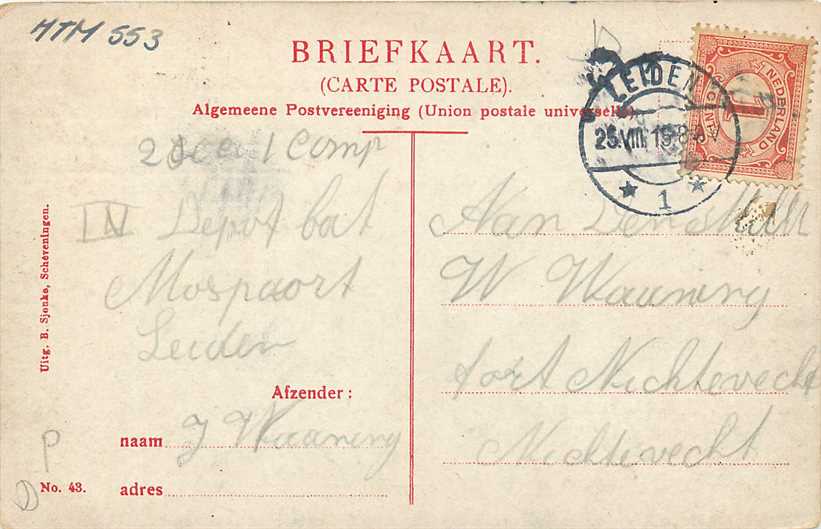 HTM 553
BRIEFKAART.
(CARTE POSTALE).
Algemeene Postvereeniging (Union postale universelle)
LEIDEN
25.VIII.15.8
1
NEDERLAND
1
CENT
2 1 Comp
IV Depot bat
Leiden
Afzender :
naam J Waaning
adres
Aan Den
W Waaning
fort Nichtevecht
Nichtevecht
Uitg. B. Sjenke, Scheveningen.
P
No. 43.